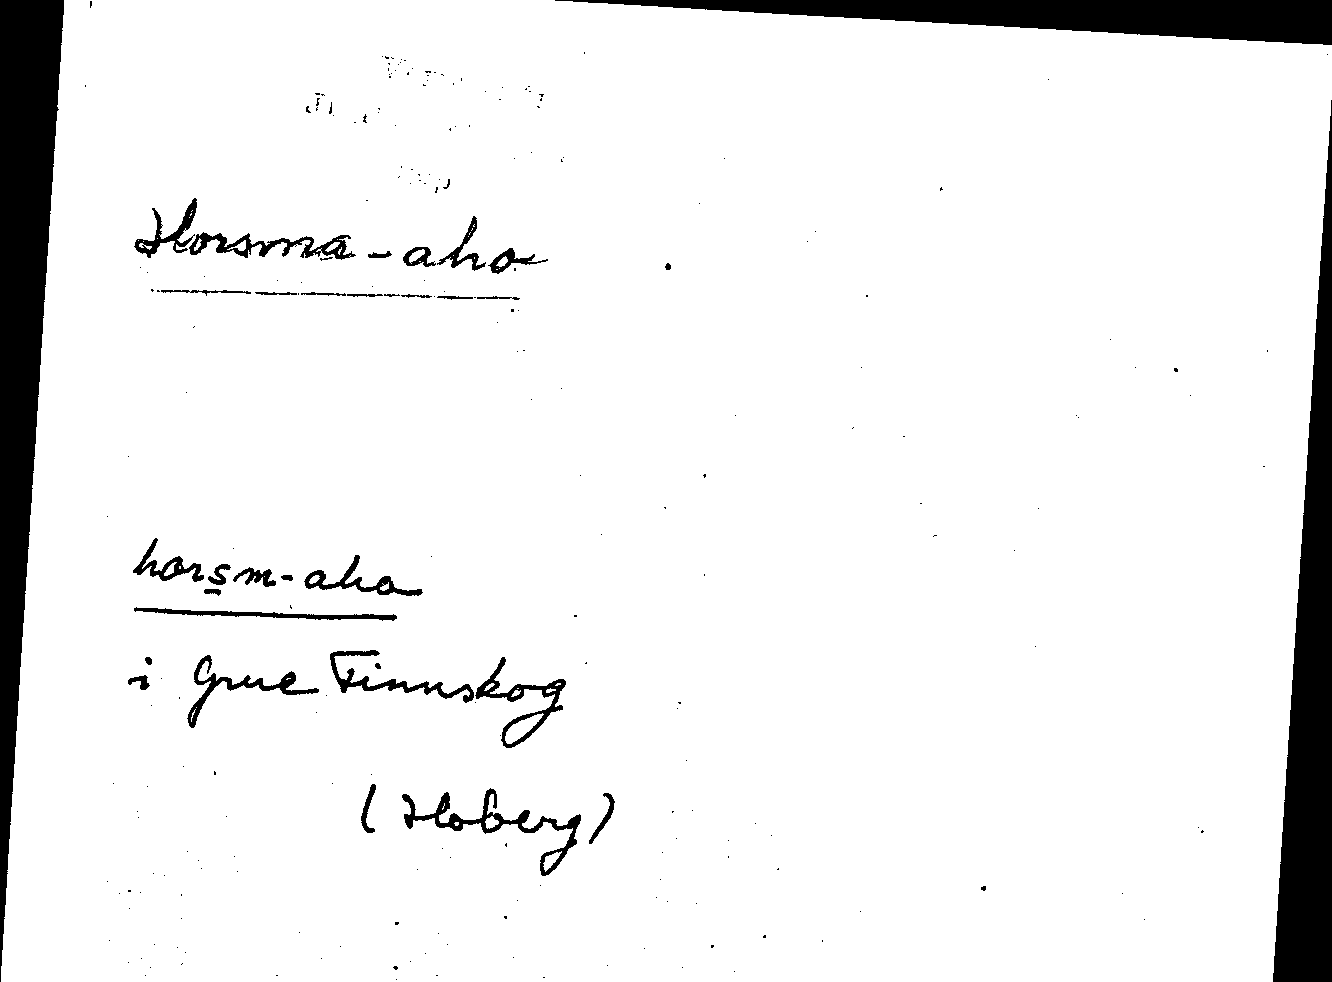 Horsma-aho
hors̲m-aho
i Grue Finnskog
(Hoberg)